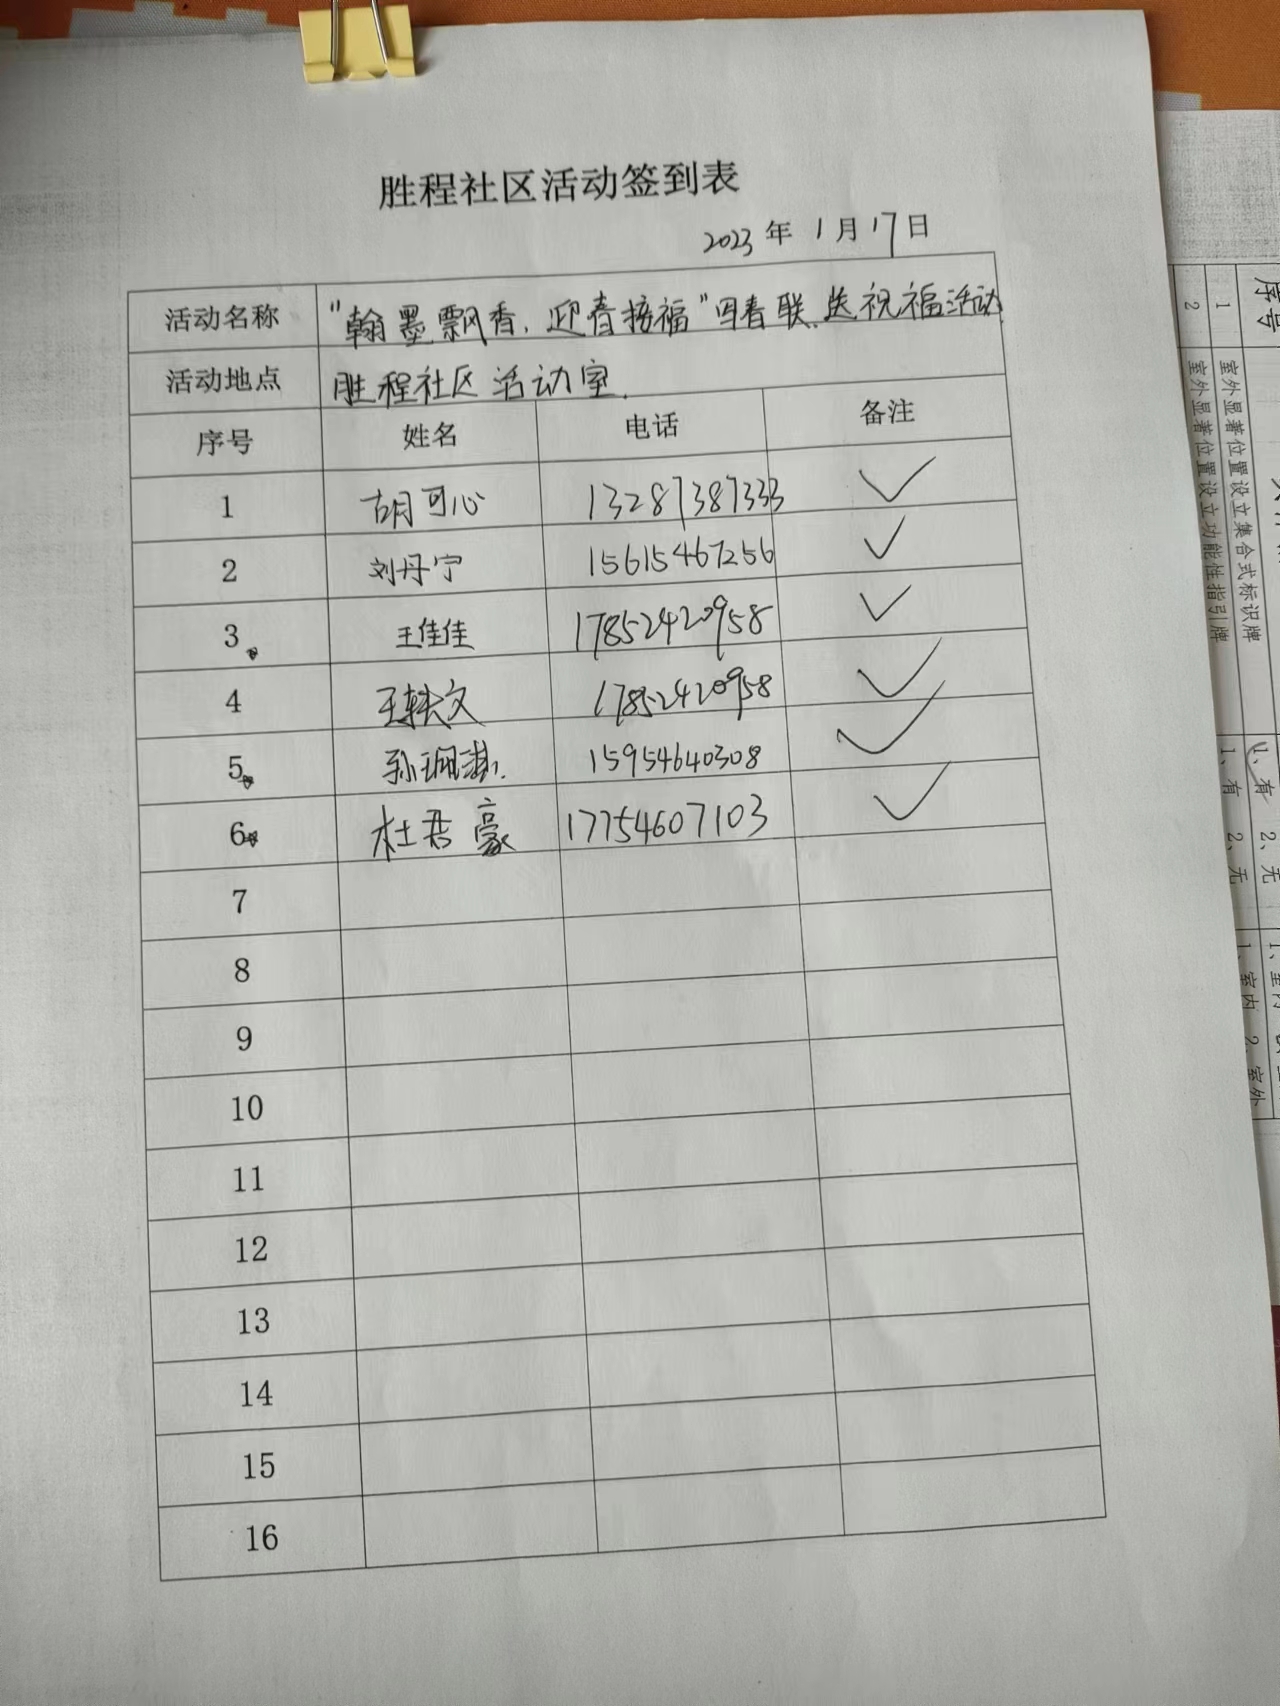 胜程社区活动签到表
2023年1月17日
活动名称 "翰墨飘香,迎春接福"写春联、送祝福活动
活动地点 胜程社区活动室.
序号 姓名 电话 备注
1 胡可心 13287387333 ✓
2 刘丹宁 15615467256 ✓
3 王佳佳 17852420958 ✓
4 王轶文 17852420958 ✓
5 孙珮淇 15954640308 ✓
6 杜君豪 17754607103 ✓
7
8
9
10
11
12
13
14
15
16
序号
1 室外显著位置设立集合式标识牌 1、有 2、无
2 室外显著位置设立功能性指引牌 1、有 2、无
1、室内 2、室外